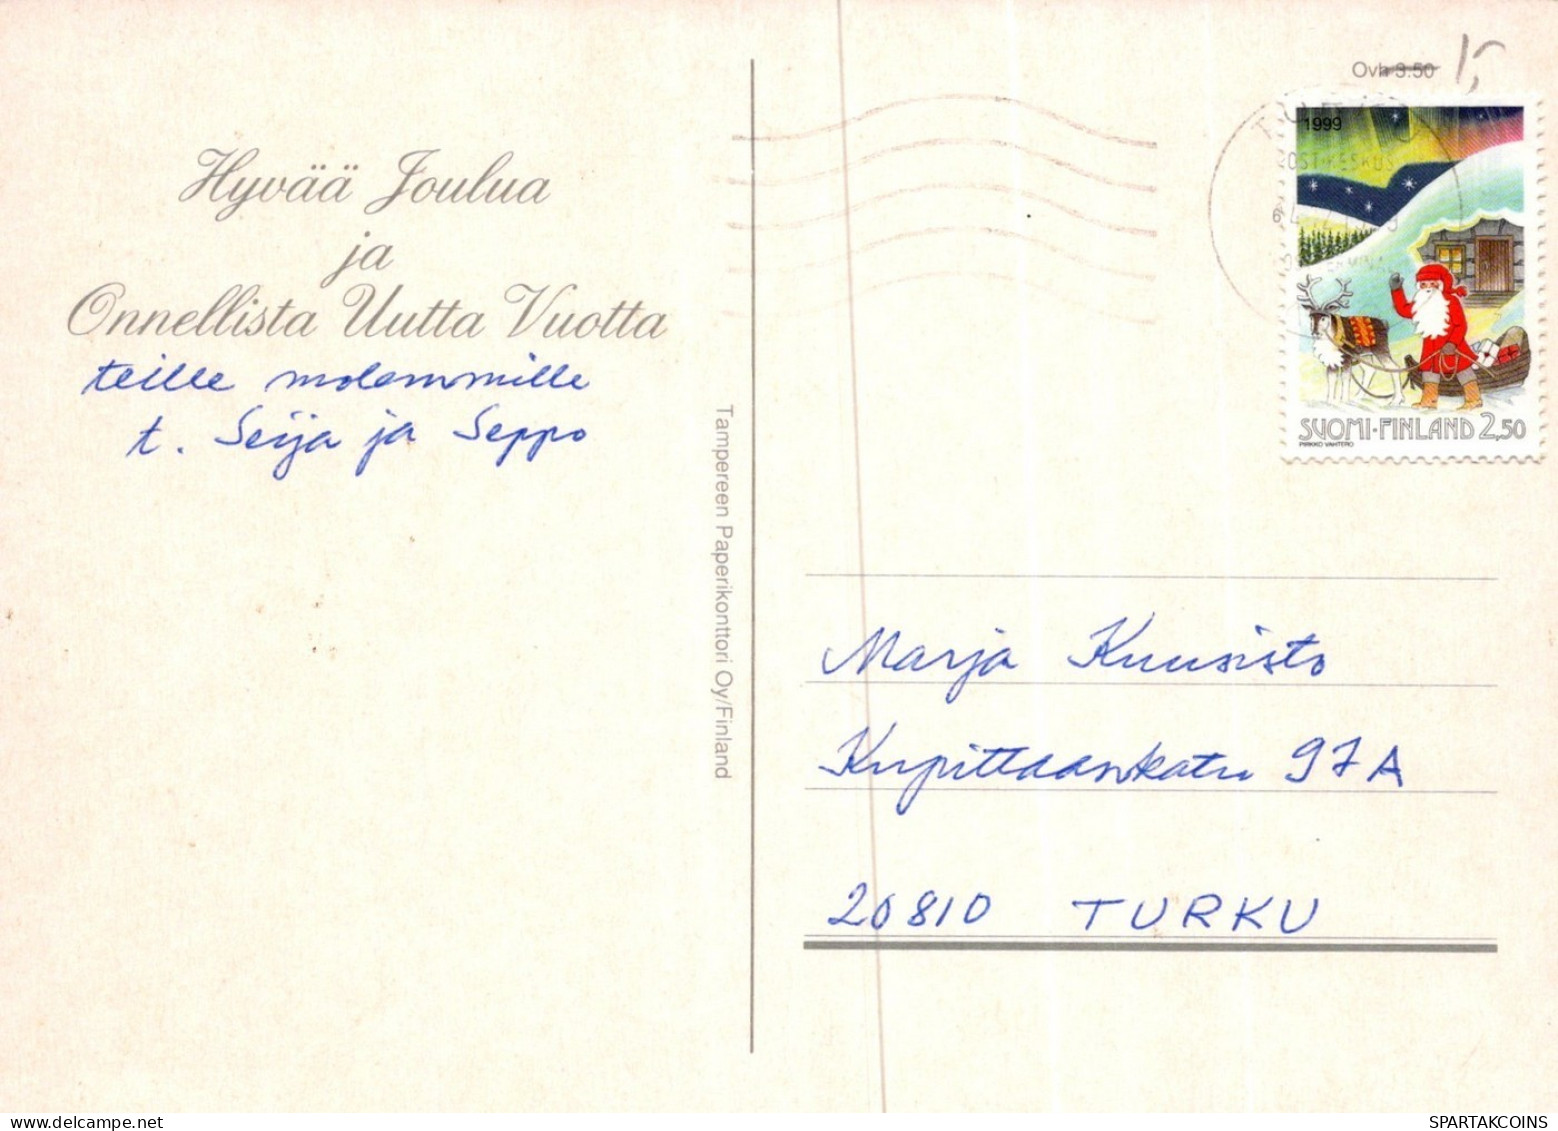 Hyvää Joulua
ja
Onnellista Uutta Vuotta
teille molemmille
t. Seija ja Seppo
Tampereen Paperikonttori Oy/Finland
Ovh 3.50 1,-
1999
SUOMI-FINLAND 2,50
PIRKKO VAHTERO
Marja Kuusisto
Kupittaankatu 97 A
20810 TURKU
SPARTAKCOINS